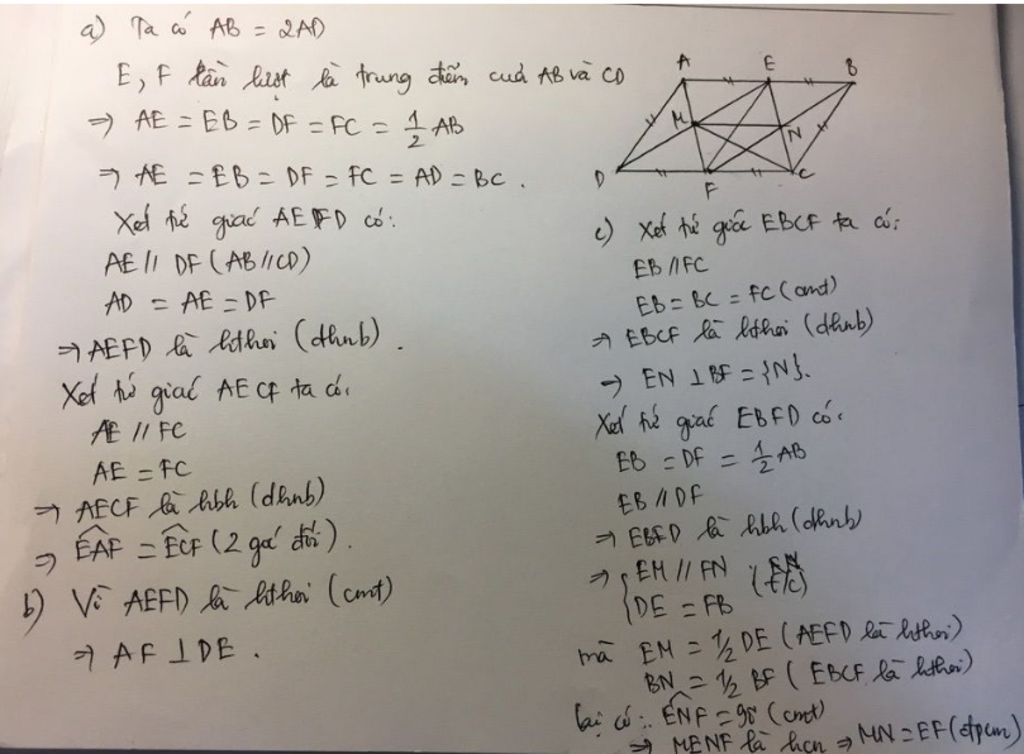 a) Ta có AB = 2AD
E, F lần lượt là trung điểm cuả AB và CD
=> AE = EB = DF = FC = 1/2 AB
=> AE = EB = DF = FC = AD = BC.
Xét tứ giác AEFD có:
AE // DF (AB // CD)
AD = AE = DF
=> AEFD là hthoi (dhnb).
Xét tứ giác AECF ta có:
AE // FC
AE = FC
=> AECF là hbh (dhnb)
=> \widehat{EAF} = \widehat{ECF} (2 góc đối).
b) Vì AEFD là hthoi (cmt)
=> AF ⊥ DE.
A E B
M N
D F C
c) Xét tứ giác EBCF ta có:
EB // FC
EB = BC = FC (cmt)
=> EBCF là hthoi (dhnb)
=> EN ⊥ BF = {N}.
Xét tứ giác EBFD có:
EB = DF = 1/2 AB
EB // DF
=> EBFD là hbh (dhnb)
=> { EM // FN (t/c)
DE = FB
mà EM = 1/2 DE (AEFD là hthoi)
BN = 1/2 BF (EBCF là hthoi)
lại có: \widehat{ENF} = 90° (cmt)
=> MENF là hcn => MN = EF (đpcm)